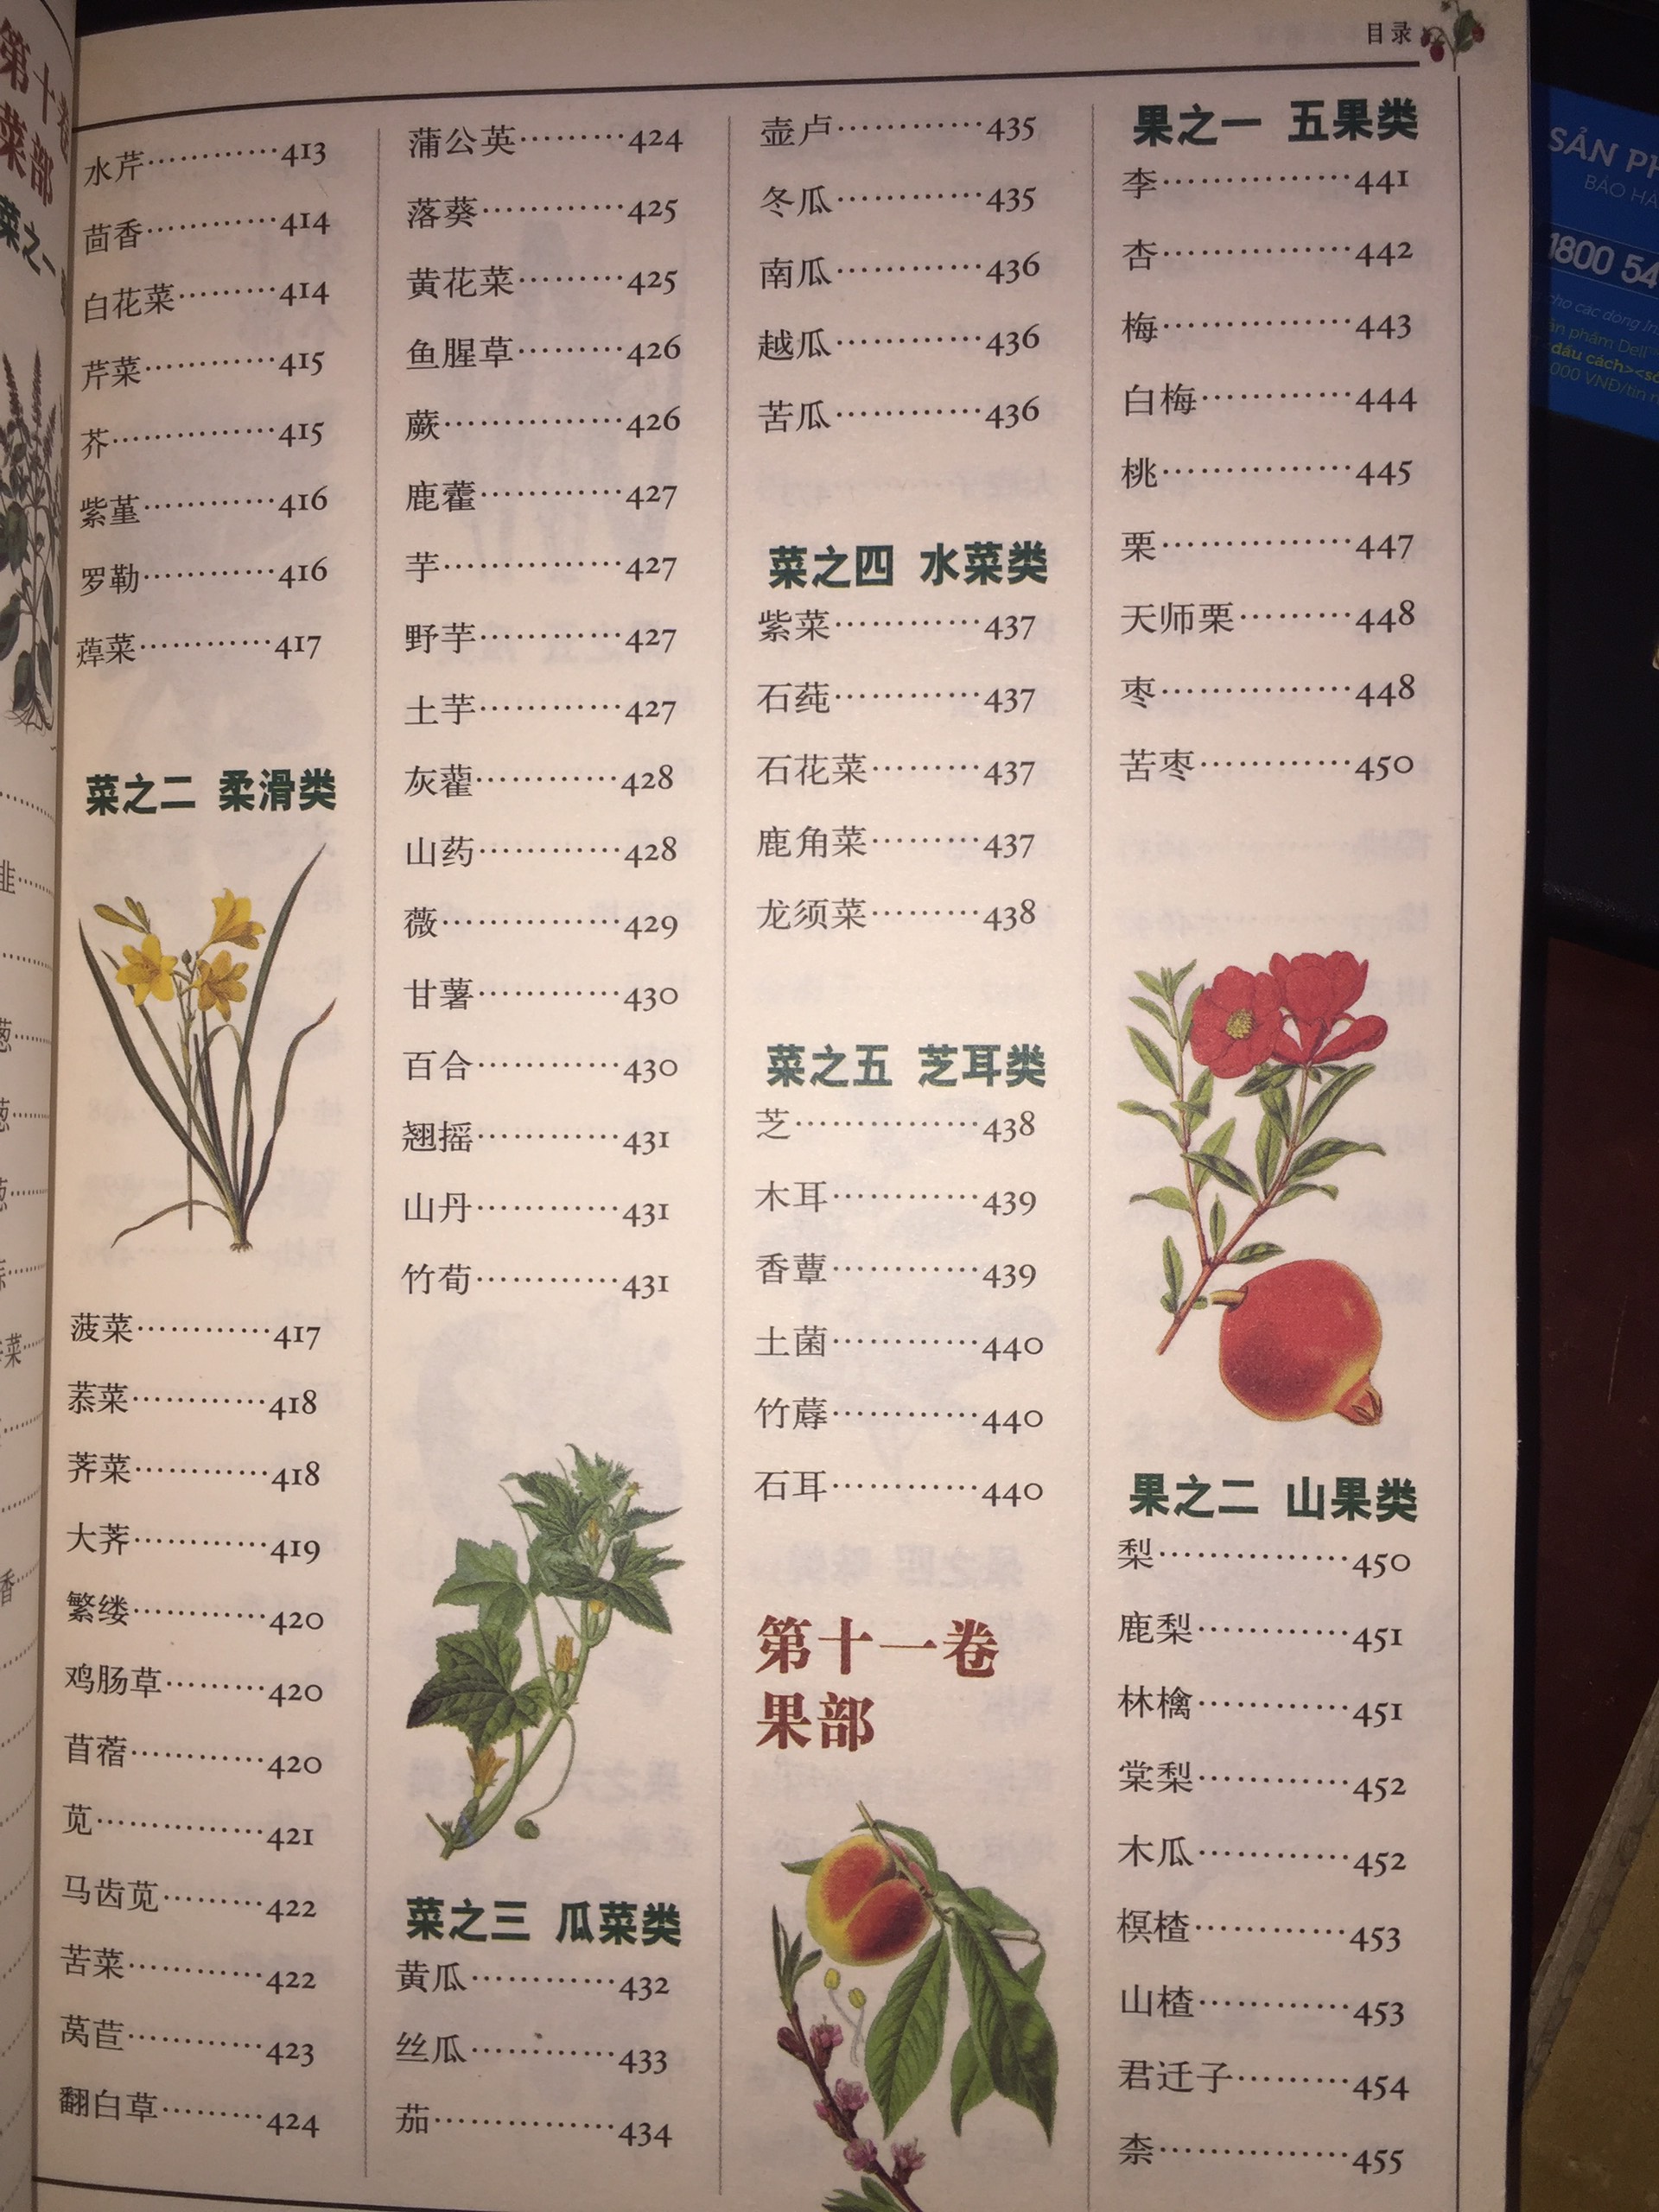 目录
水芹…………413
茴香…………414
白花菜………414
芹菜…………415
芥……………415
紫堇…………416
罗勒…………416
蔊菜…………417
菜之二 柔滑类
菠菜…………417
菾菜…………418
荠菜…………418
大荠…………419
繁缕…………420
鸡肠草………420
苜蓿…………420
苋……………421
马齿苋………422
苦菜…………422
莴苣…………423
翻白草………424
蒲公英………424
落葵…………425
黄花菜………425
鱼腥草………426
蕨……………426
鹿藿…………427
芋……………427
野芋…………427
土芋…………427
灰藋…………428
山药…………428
薇……………429
甘薯…………430
百合…………430
翘摇…………431
山丹…………431
竹荀…………431
菜之三 瓜菜类
黄瓜…………432
丝瓜…………433
茄……………434
壶卢…………435
冬瓜…………435
南瓜…………436
越瓜…………436
苦瓜…………436
菜之四 水菜类
紫菜…………437
石莼…………437
石花菜………437
鹿角菜………437
龙须菜………438
菜之五 芝耳类
芝……………438
木耳…………439
香蕈…………439
土菌…………440
竹蓐…………440
石耳…………440
第十一卷
果部
果之一 五果类
李……………441
杏……………442
梅……………443
白梅…………444
桃……………445
栗……………447
天师栗………448
枣……………448
苦枣…………450
果之二 山果类
梨……………450
鹿梨…………451
林檎…………451
棠梨…………452
木瓜…………452
榠楂…………453
山楂…………453
君迁子………454
柰……………455
第十卷
菜部
菜之一
SẢN PH
BẢO HÀ
1800 54